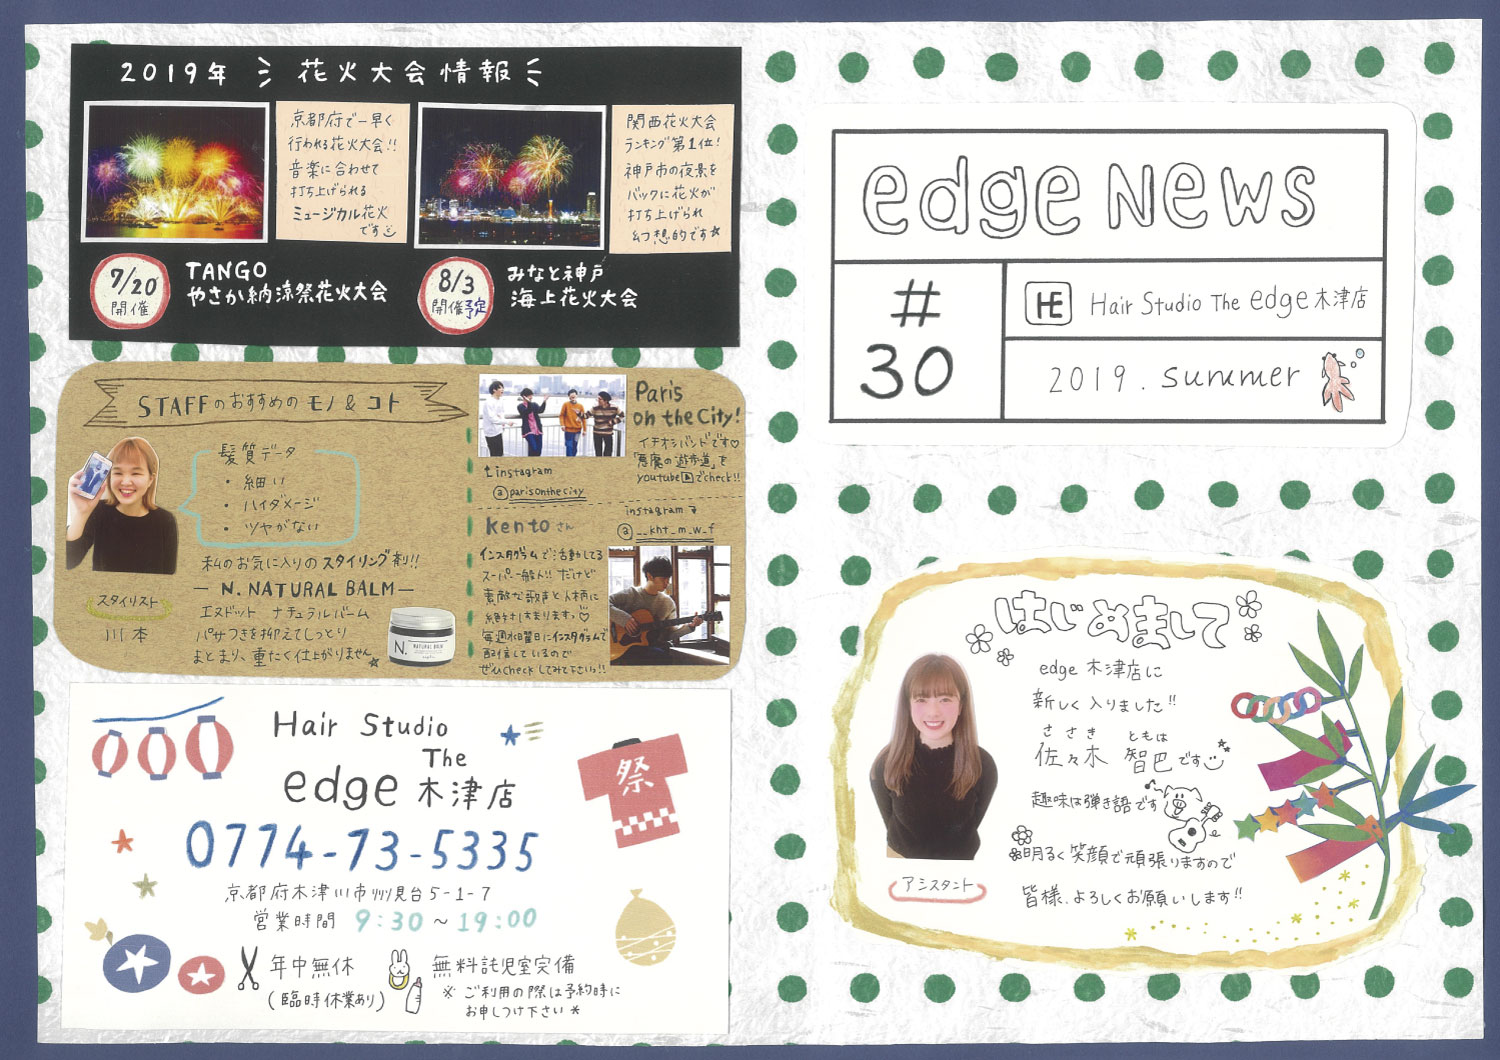 2019年 花火大会情報
京都府で一早く
行われる花火大会!!
音楽に合わせて
打ち上げられる
ミュージカル花火
です
関西花火大会
ランキング第1位!
神戸市の夜景を
バックに花火が
打ち上げられ
幻想的です
7/20
開催
TANGO
やさか納涼祭花火大会
8/3
開催予定
みなと神戸
海上花火大会
STAFFのおすすめの モノ & コト
髪質データ
・細い
・ハイダメージ
・ツヤがない
私のお気に入りのスタイリング剤!!
— N. NATURAL BALM —
エヌドット ナチュラルバーム
パサつきを抑えてしっとり
まとまり、重たく仕上がりません
スタイリスト
川本
N.
NATURAL BALM
Paris
on the City!
イチオシバンドです♡
「悪魔の遊歩道」を
youtubeでcheck!!
↑instagram
@parisonthecity
kentoさん
instagram
@__kht_m_w_f
インスタグラムで活動してる
スーパー一般人!! だけど
素敵な歌声と人柄に
絶対はまります。♡
毎週水曜日にインスタグラムで
配信しているので
ぜひcheckしてみて下さい!!
Hair Studio
The
edge 木津店
0774-73-5335
京都府木津川市州見台5-1-7
営業時間 9:30〜19:00
年中無休
(臨時休業あり)
無料託児室完備
※ご利用の際は予約時に
お申しつけ下さい*
祭
edge News
#
30
HE Hair Studio The edge 木津店
2019. summer
はじめまして
edge 木津店に
新しく入りました!!
ささき ともは
佐々木 智巴です
趣味は弾き語です
明るく笑顔で頑張りますので
皆様、よろしくお願いします!!
アシスタント